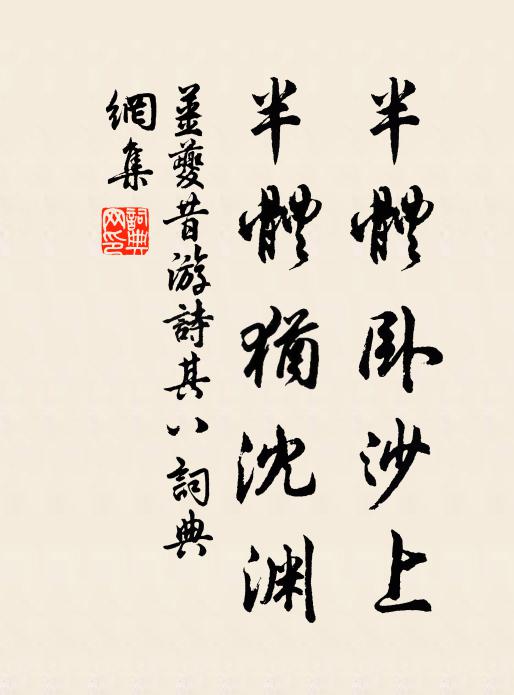 半體卧沙上
半體猶沈渊
姜夔昔游詩其八詞典
網集
詞典
网印